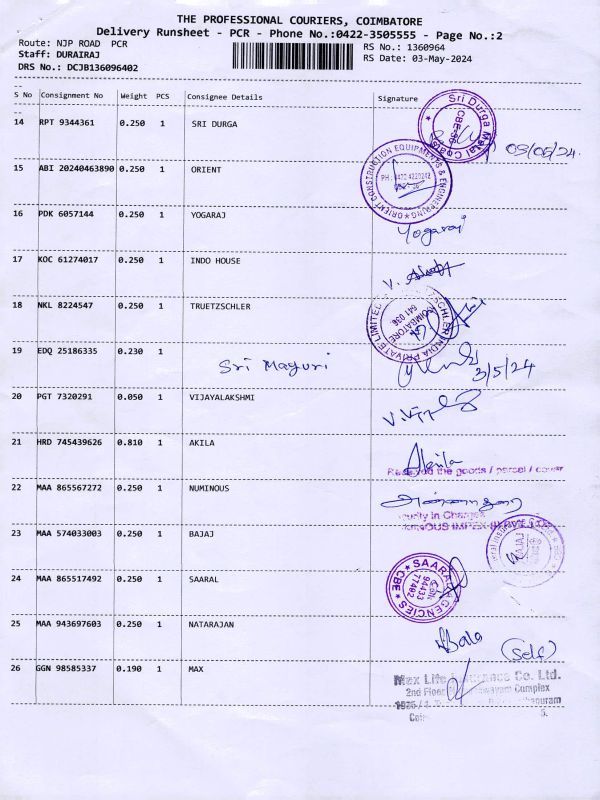 THE PROFESSIONAL COURIERS, COIMBATORE
Delivery Runsheet - PCR - Phone No.:0422-3505555 - Page No.:2
Route: NJP ROAD PCR
RS No.: 1360964
Staff: DURAIRAJ
RS Date: 03-May-2024
DRS No.: DCJB136096402
S No Consignment No Weight PCS Consignee Details Signature
14 RPT 9344361 0.250 1 SRI DURGA
Sri Durga Metal Coats
CBE-36
03/05/24
15 ABI 20240463890 0.250 1 ORIENT
ORIENT CONSTRUCTION EQUIPMENTS & ENGINEERING
16 PDK 6057144 0.250 1 YOGARAJ
Yogaraj
17 KOC 61274017 0.250 1 INDO HOUSE
18 NKL 8224547 0.250 1 TRUETZSCHLER
INDIA PRIVATE LIMITED
COIMBATORE
641 036
19 EDQ 25186335 0.230 1 Sri Mayuri
3/5/24
20 PGT 7320291 0.050 1 VIJAYALAKSHMI
21 HRD 745439626 0.810 1 AKILA
Akila
Received the goods / parcel / cover
22 MAA 865567272 0.250 1 NUMINOUS
Security in Charge
NUMINOUS IMPEX
23 MAA 574033003 0.250 1 BAJAJ
BAJAJ
24 MAA 865517492 0.250 1 SAARAL
SAARAL AGENCIES
CBE
94433
77492
25 MAA 943697603 0.250 1 NATARAJAN
Bala (Self)
26 GGN 98585337 0.190 1 MAX
Max Life Insurance Co. Ltd.
2nd Floor Complex